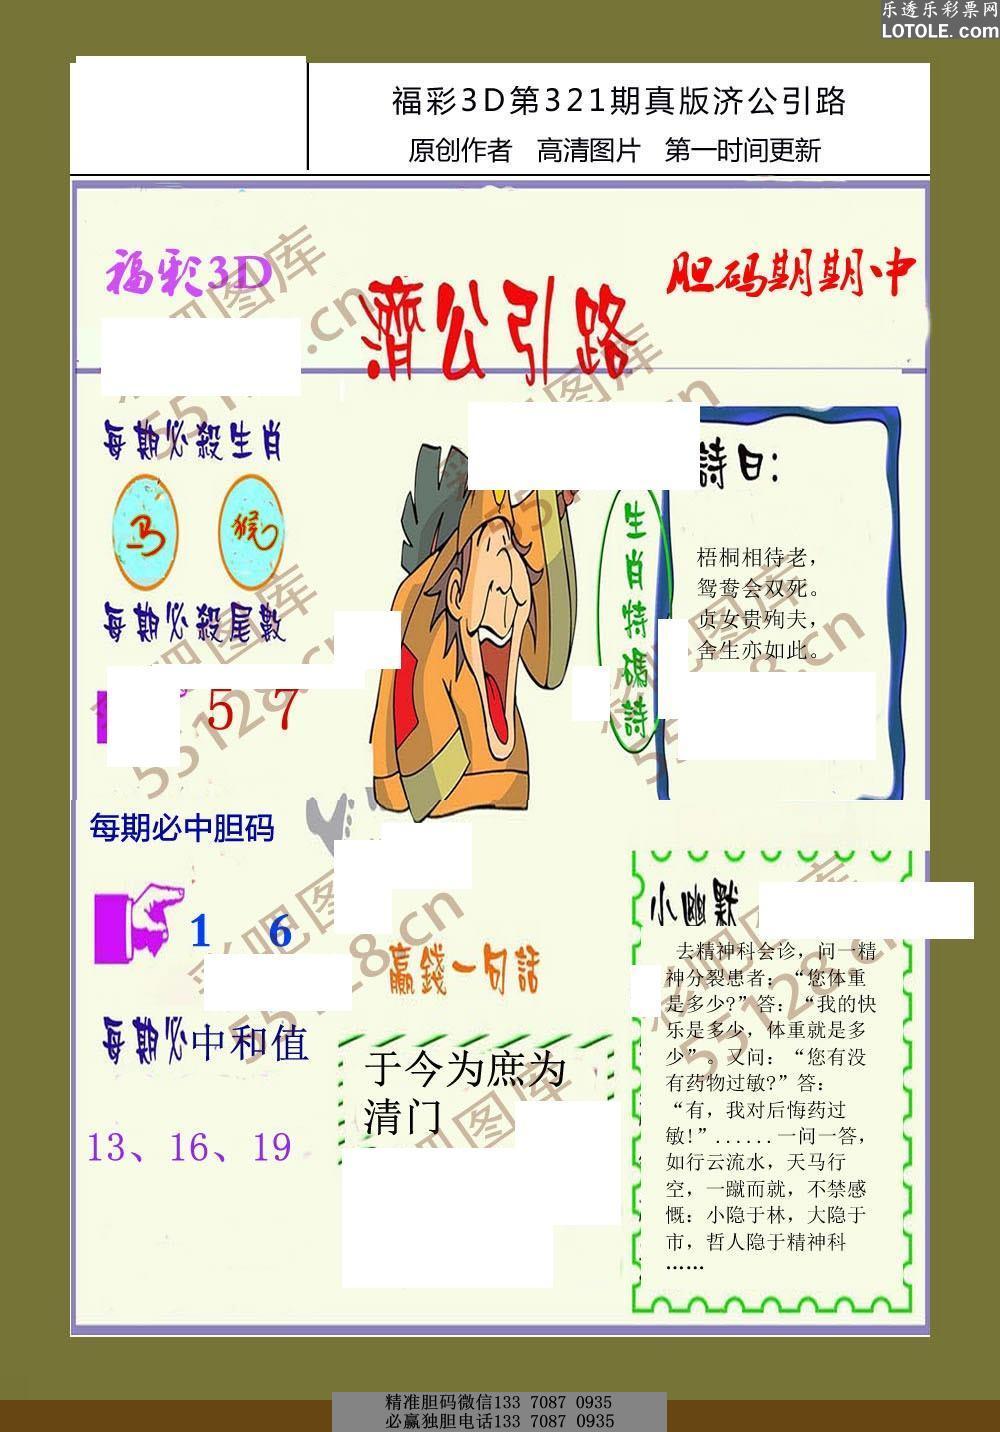 乐透乐彩票网
LOTOLE.com
福彩3D第321期真版济公引路
原创作者 高清图片 第一时间更新
福彩3D
濟公引路
胆码期期中
每期必殺生肖
马 猴
每期必殺尾數
5 7
每期必中胆码
1 6
每期必中和值
13、16、19
生肖特碼詩
詩曰:
梧桐相待老，
鸳鸯会双死。
贞女贵殉夫，
舍生亦如此。
赢錢一句話
于今为庶为
清门
小幽默
去精神科会诊，问一精
神分裂患者；“您体重
是多少?”答：“我的快
乐是多少，体重就是多
少”。又问：“您有没
有药物过敏?”答：
“有，我对后悔药过
敏!”......一问一答，
如行云流水，天马行
空，一蹴而就，不禁感
慨：小隐于林，大隐于
市，哲人隐于精神科
……
彩吧图库
55128.cn
精准胆码微信133 7087 0935
必赢独胆电话133 7087 0935